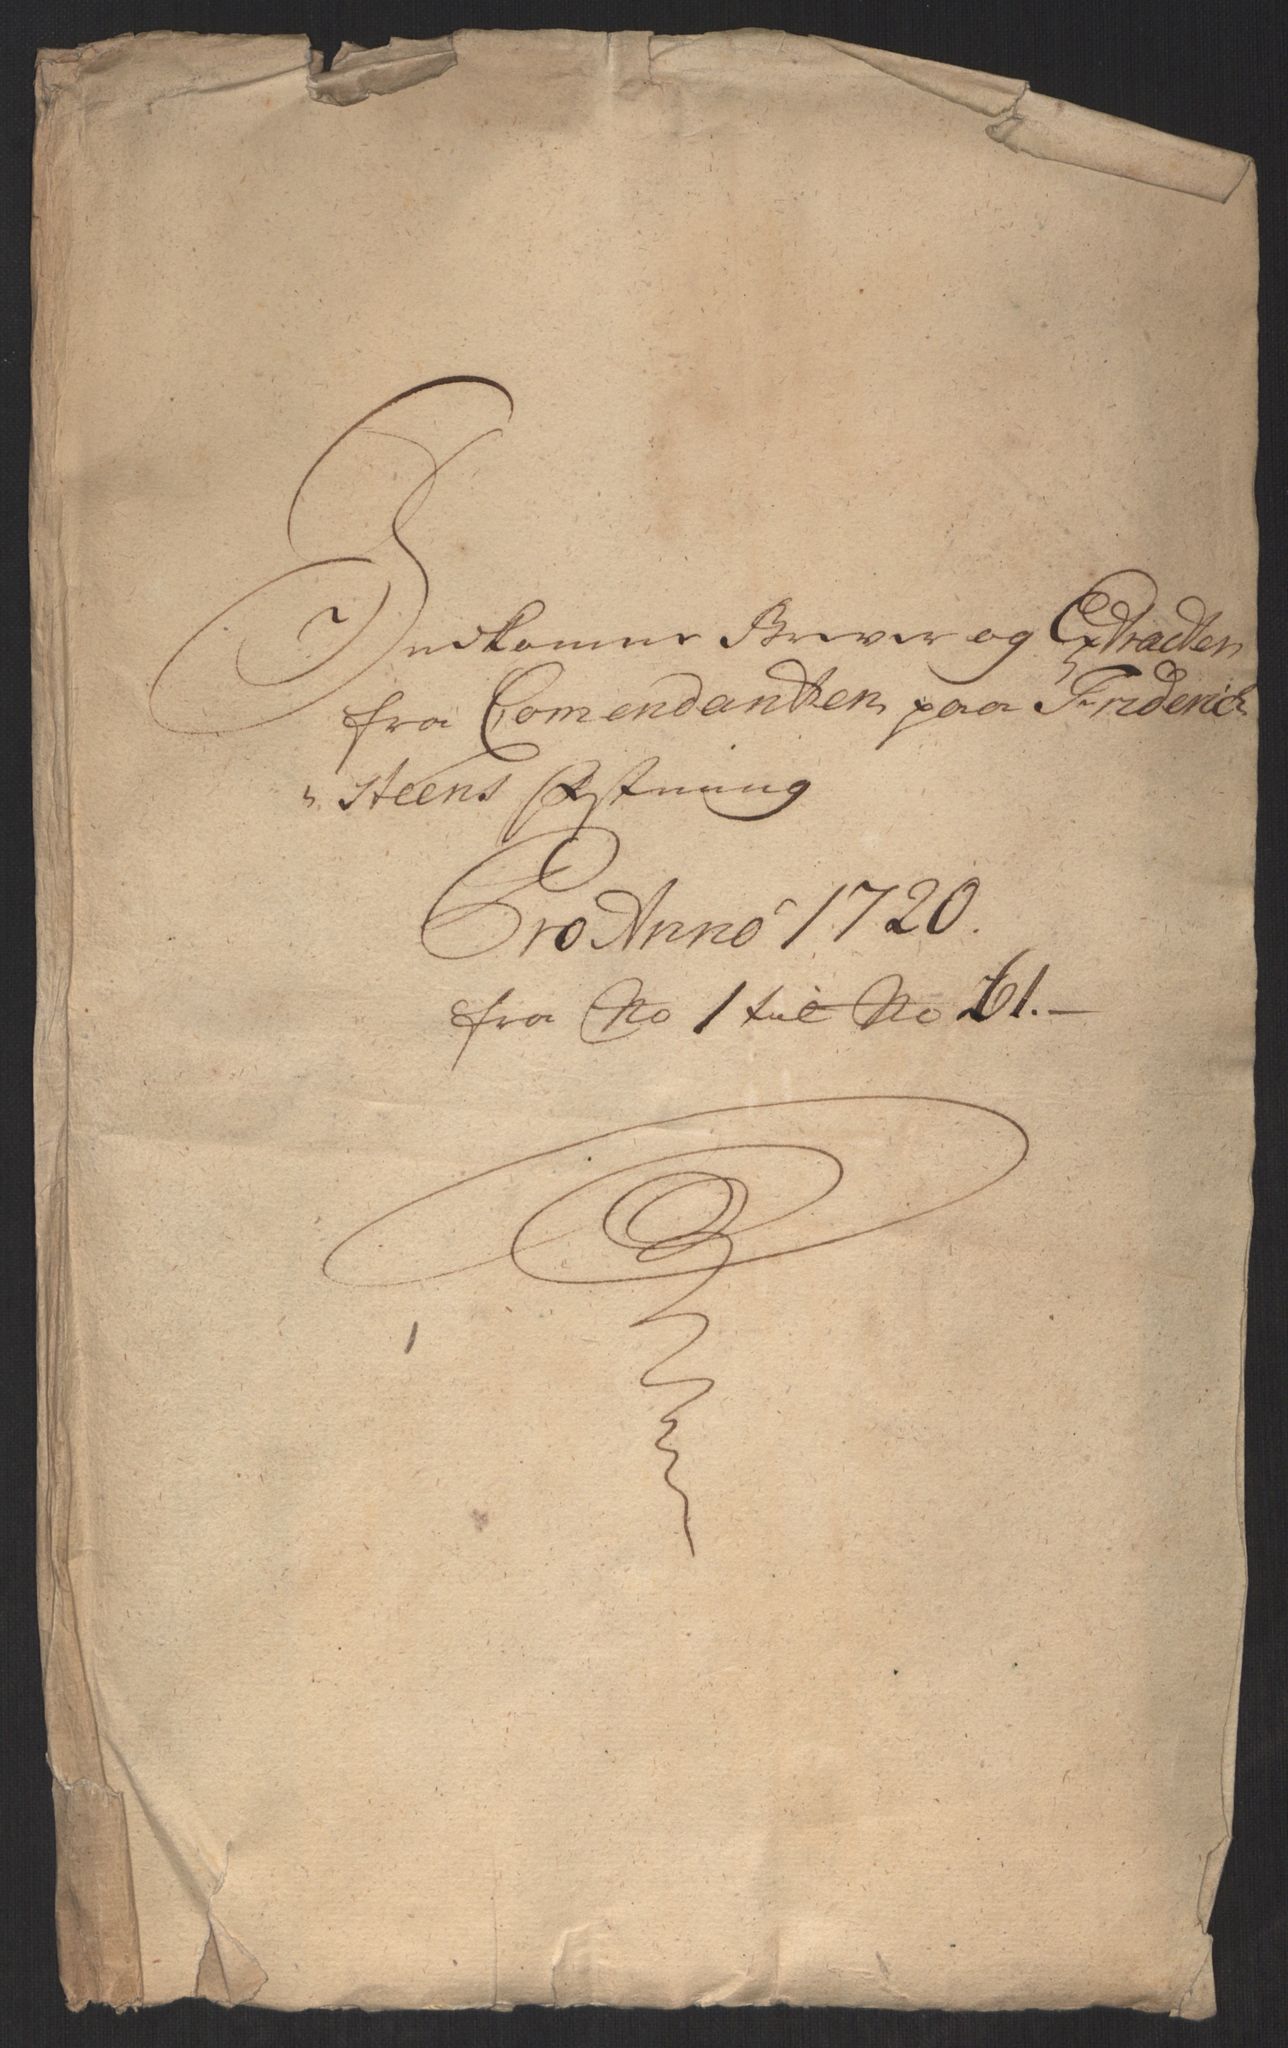 Indkomne Brever og Extracter
fra Comendanten paa Friderich
steens Festning
Pro Anno 1720.
fra No 1 til No 61.
1